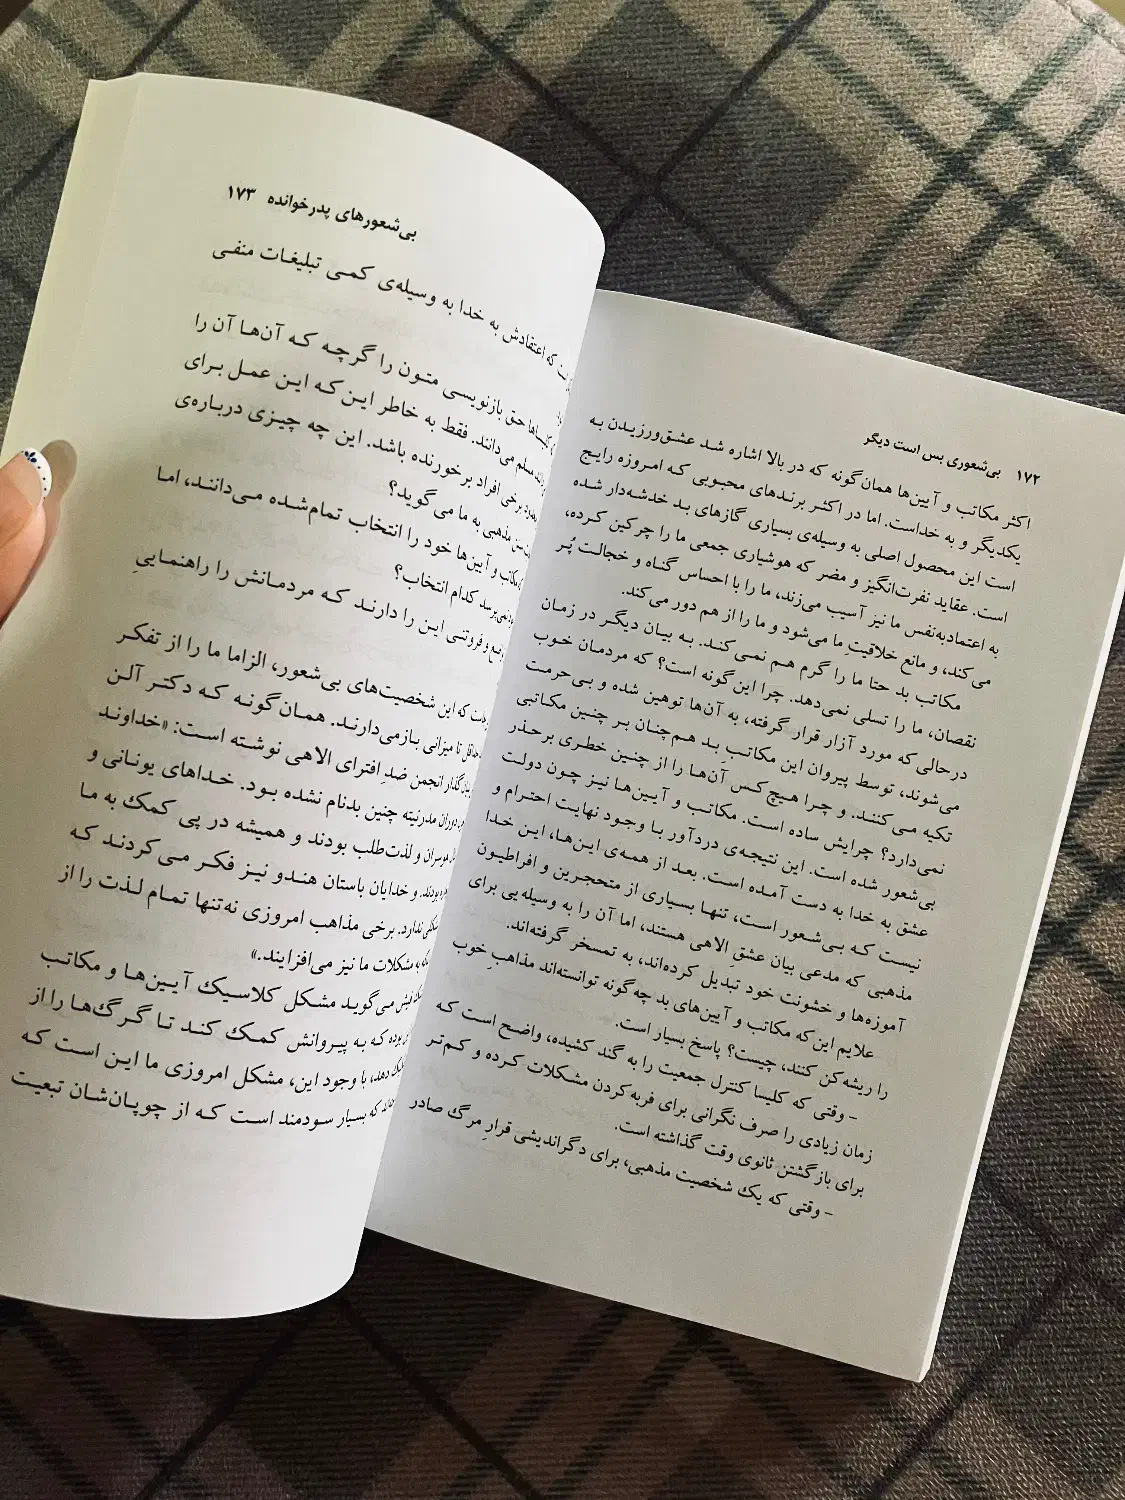 ۱۷۲ بی‌شعوری بس است دیگر
اکثر مکاتب و آیین‌ها همان‌گونه که در بالا اشاره شد عشق‌ورزیدن به
یکدیگر و به خداست. اما در اکثر برندهای محبوبی که امروزه رایج
است این محصول اصلی به وسیله‌ی بسیاری گازهای بد خدشه‌دار شده
است. عقاید نفرت‌انگیز و مضر که هوشیاری جمعی ما را چرکین کرده،
به اعتمادبه‌نفس ما نیز آسیب می‌زند، ما را با احساس گناه و خجالت پُر
می‌کند، و مانع خلاقیتِ ما می‌شود و ما را از هم دور می‌کند.
مکاتب بد حتا ما را گرم هم نمی‌کند. به بیان دیگر در زمان
نقصان، ما را تسلی نمی‌دهد. چرا این‌گونه است؟ که مردمان خوب
درحالی‌که مورد آزار قرار گرفته، به آن‌ها توهین شده و بی‌حرمت
می‌شوند، توسط پیروان این مکاتبِ بد هم‌چنان بر چنین مکاتبی
تکیه می‌کنند. و چرا هیچ‌کس آن‌ها را از چنین خطری برحذر
نمی‌دارد؟ چرایش ساده است. مکاتب و آیین‌ها نیز چون دولت
بی‌شعور شده است. این نتیجه‌ی دردآور با وجود نهایت احترام و
عشق به خدا به دست آمده است. بعد از همه‌ی این‌ها، این خدا
نیست که بی‌شعور است، تنها بسیاری از متحجرین و افراطیون
مذهبی که مدعی بیان عشقِ الاهی هستند، اما آن را به وسیله‌یی برای
آموزه‌ها و خشونت خود تبدیل کرده‌اند، به تمسخر گرفته‌اند.
علایم این‌که مکاتب و آیین‌های بد چه‌گونه توانسته‌اند مذاهبِ خوب
را ریشه‌کن کنند، چیست؟ پاسخ بسیار است.
- وقتی که کلیسا کنترل جمعیت را به گند کشیده، واضح است که
زمان زیادی را صرف نگرانی برای فربه‌کردن مشکلات کرده و کم‌تر
برای بازگشتن ثانوی وقت گذاشته است.
- وقتی که یک شخصیت مذهبی، برای دگراندیشی قرارِ مرگ صادر
بی‌شعورهای پدرخوانده ۱۷۳
که اعتقادش به خدا به وسیله‌ی کمی تبلیغات منفی
کلیساها حق بازنویسی متون را گرچه که آن‌ها آن را
مسلم می‌دانند. فقط به خاطر این‌که این عمل برای
برخی افراد برخورنده باشد. این چه چیزی درباره‌ی
مذهبی به ما می‌گوید؟
مکاتب و آیین‌ها خود را انتخاب تمام‌شده می‌دانند، اما
نمی‌پرسد کدام انتخاب؟
و فروتنی این را دارند که مردمانش را راهنماییِ
که این شخصیت‌های بی‌شعور، الزاما ما را از تفکر
حداقل تا میزانی بازمی‌دارند. همان‌گونه که دکتر آلن
بنیان‌گذار انجمن ضدِ افترای الاهی نوشته است: «خداوند
دوران مدرنیته چنین بدنام نشده بود. خداهای یونانی و
و لذت‌طلب بودند و همیشه در پی کمک به ما
بودند. و خدایان باستان هندو نیز فکر می‌کردند که
ندارد. برخی مذاهب امروزی نه‌تنها تمام لذت را از
مشکلات ما نیز می‌افزایند.»
می‌گوید مشکل کلاسیک آیین‌ها و مکاتب
بوده که به پیروانش کمک کند تا گرگ‌ها را از
دهد، با وجود این، مشکل امروزی ما این است که
که بسیار سودمند است که از چوپان‌شان تبعیت